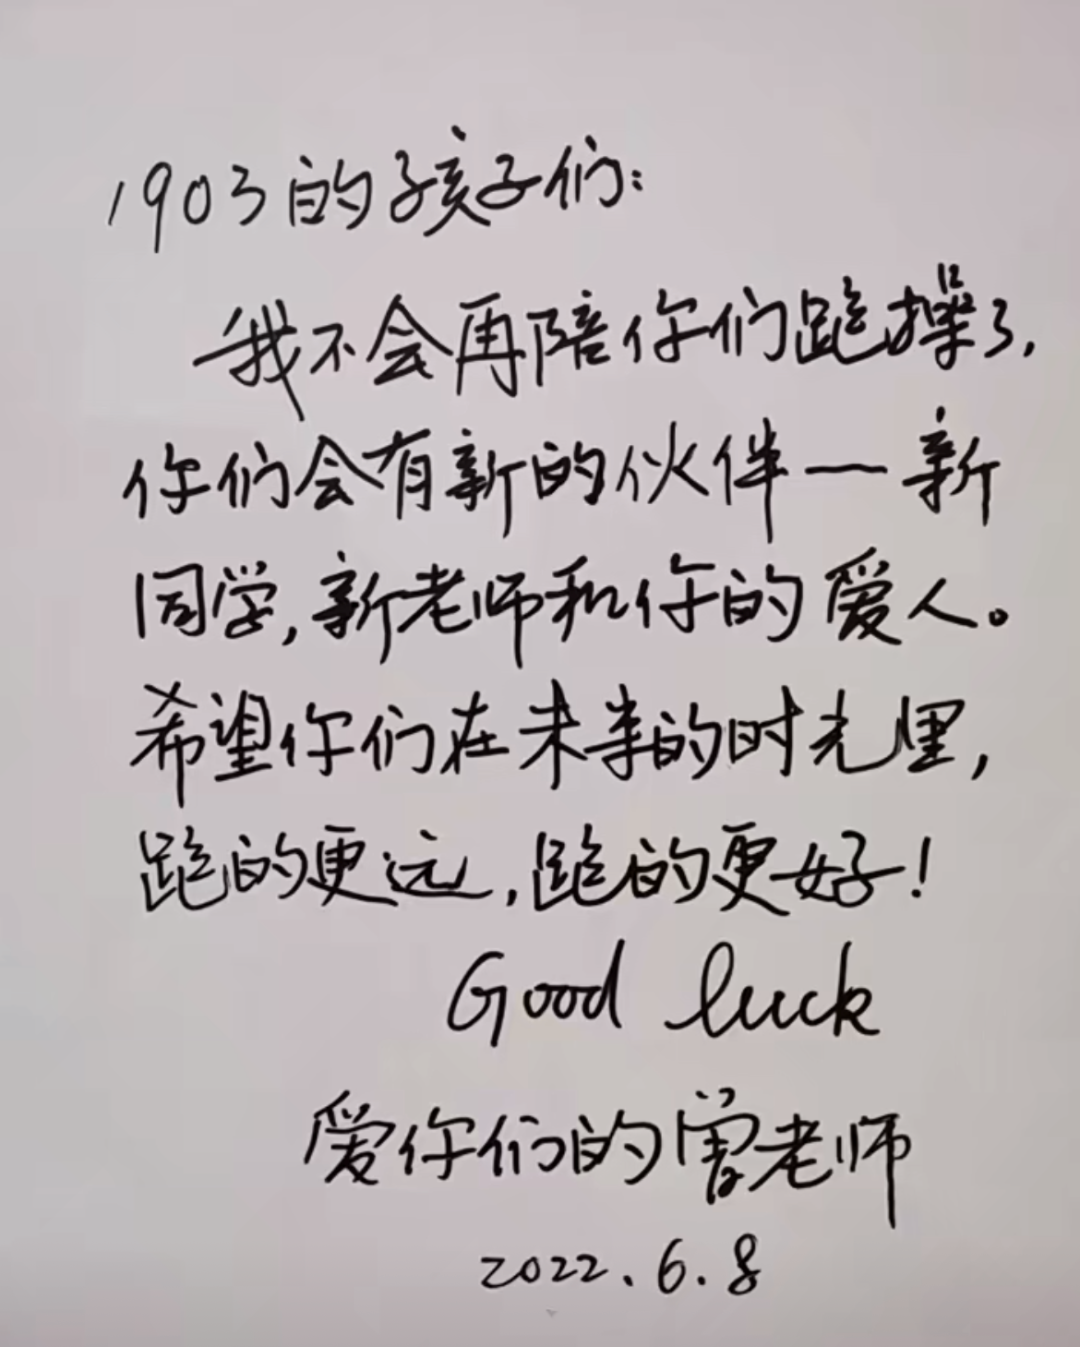 1903的孩子们:
我不会再陪你们跑操了,
你们会有新的伙伴一新
同学,新老师和你的爱人。
希望你们在未来的时光里,
跑的更远,跑的更好!
Good luck
爱你们的曾老师
2022.6.8